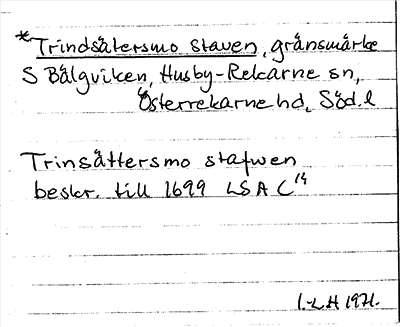 *Trindsätersmo staven, gränsmärke
S Bälgviken, Husby-Rekarne sn,
Österrekarne hd, Söd. l
Trinsättersmo stafwen
beskr. till 1699 LSA C¹⁴
I.-L H 1971.